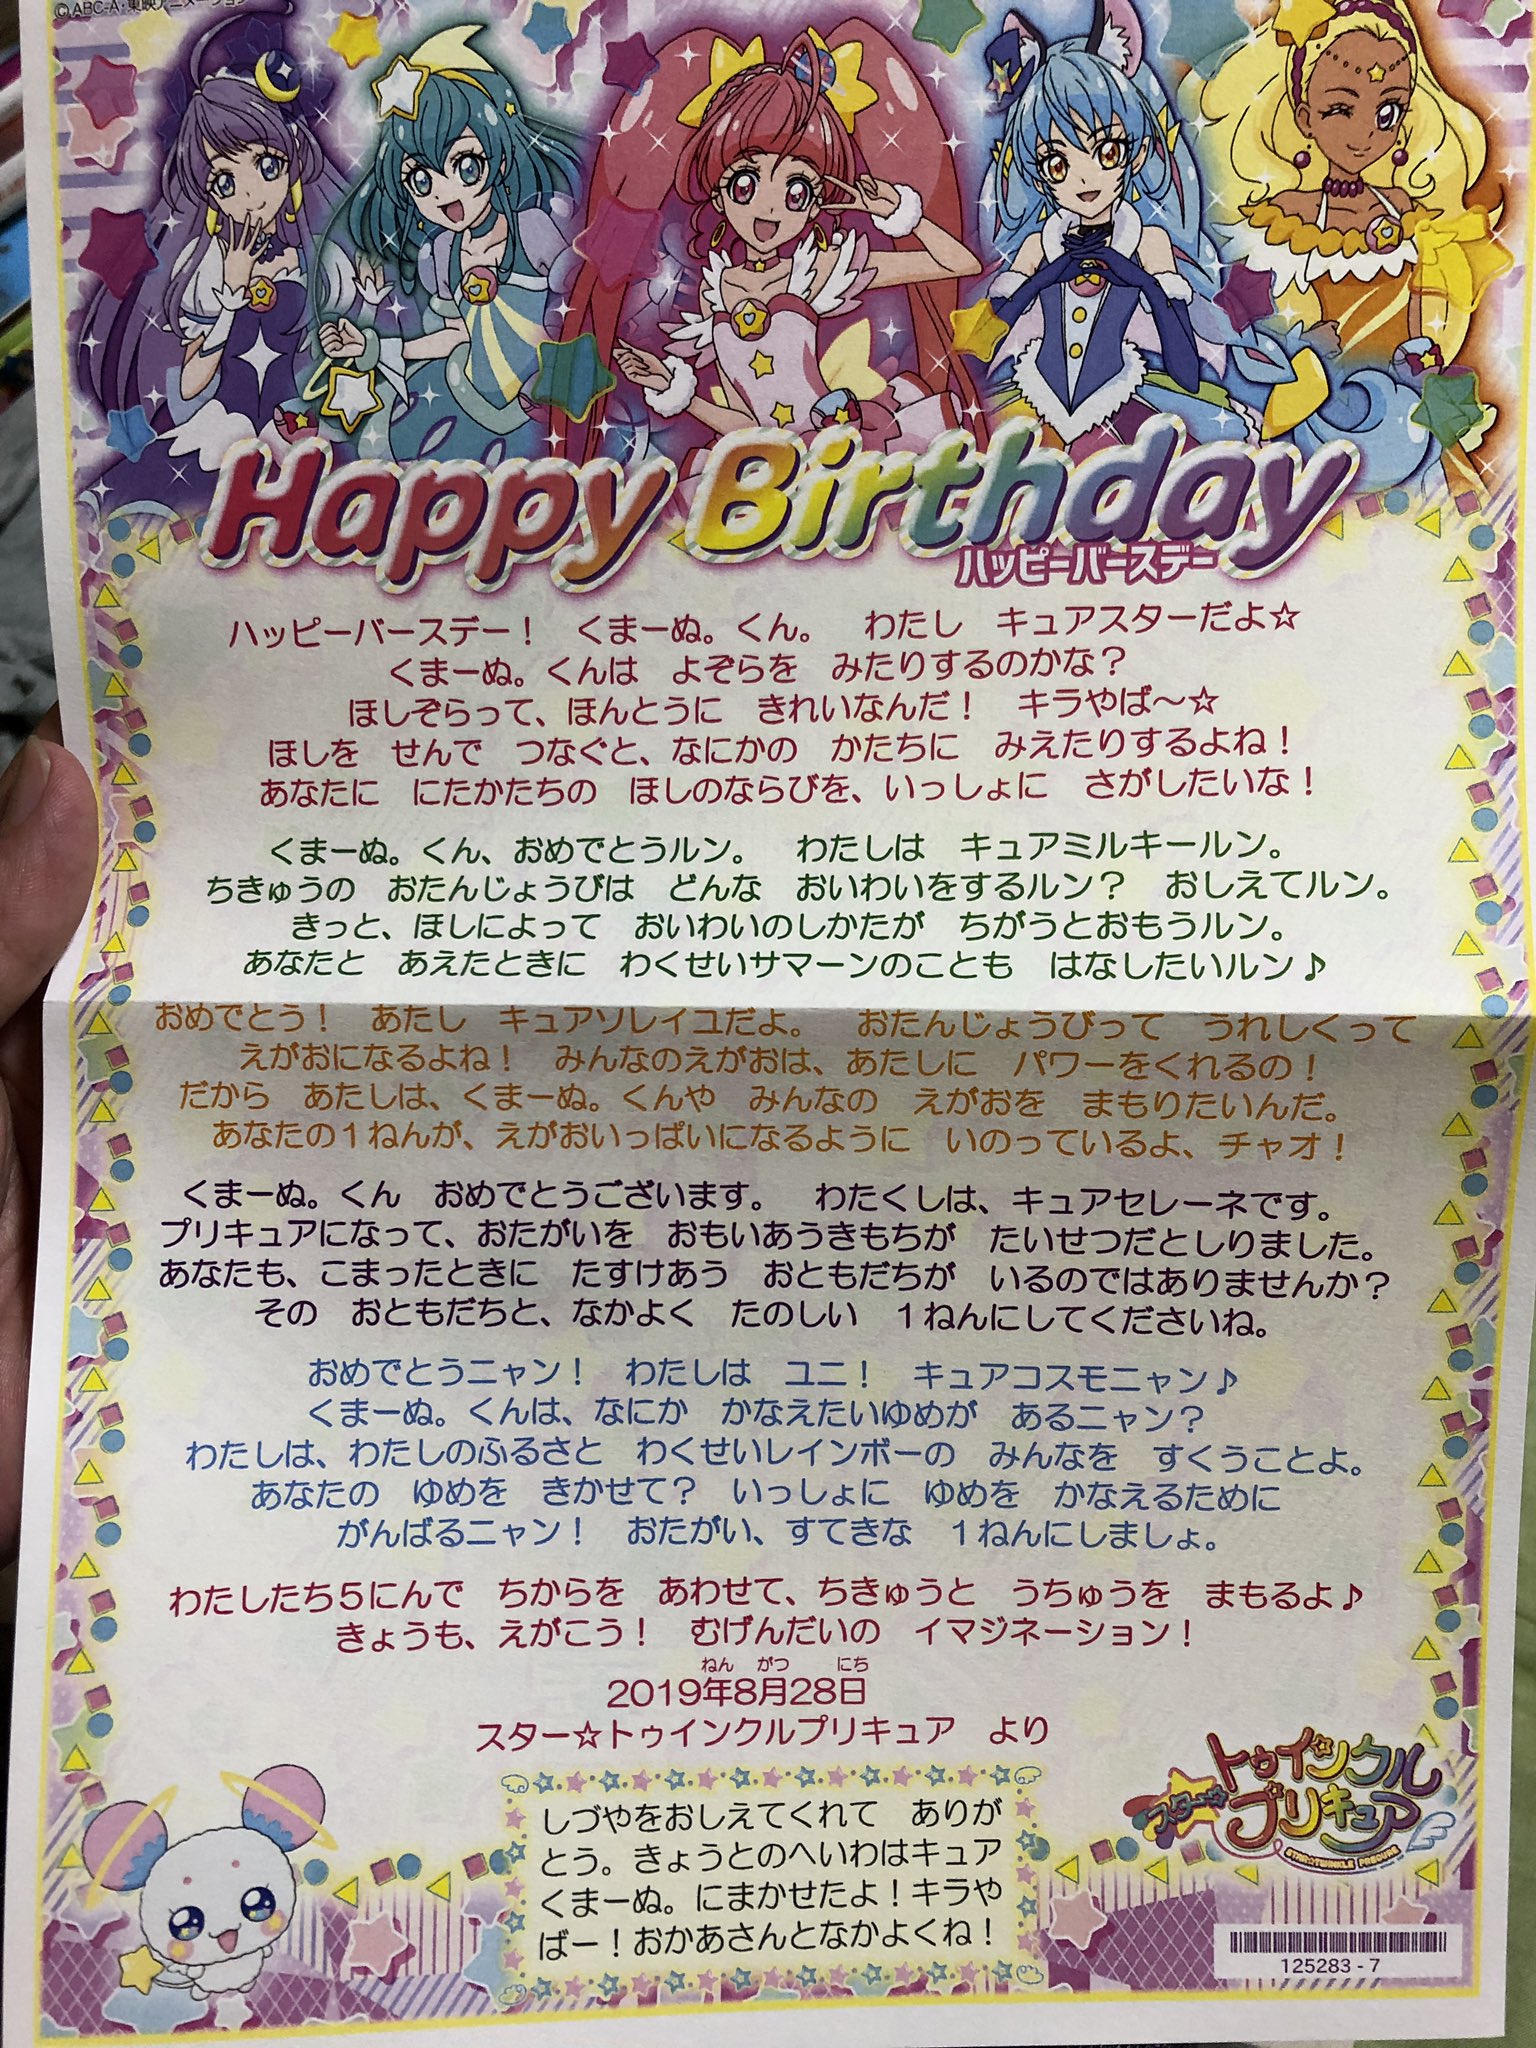 ©ABC-A・東映アニメーション
Happy Birthday
ハッピーバースデー
ハッピーバースデー！　くまーぬ。くん。　わたし　キュアスターだよ☆
くまーぬ。くんは　よぞらを　みたりするのかな？
ほしぞらって、ほんとうに　きれいなんだ！　キラやば〜☆
ほしを　せんで　つなぐと、なにかの　かたちに　みえたりするよね！
あなたに　にたかたちの　ほしのならびを、いっしょに　さがしたいな！
くまーぬ。くん、おめでとうルン。　わたしは　キュアミルキールン。
ちきゅうの　おたんじょうびは　どんな　おいわいをするルン？　おしえてルン。
きっと、ほしによって　おいわいのしかたが　ちがうとおもうルン。
あなたと　あえたときに　わくせいサマーンのことも　はなしたいルン♪
おめでとう！　あたし　キュアソレイユだよ。　おたんじょうびって　うれしくって
えがおになるよね！　みんなのえがおは、あたしに　パワーをくれるの！
だから　あたしは、くまーぬ。くんや　みんなの　えがおを　まもりたいんだ。
あなたの１ねんが、えがおいっぱいになるように　いのっているよ、チャオ！
くまーぬ。くん　おめでとうございます。　わたくしは、キュアセレーネです。
プリキュアになって、おたがいを　おもいあうきもちが　たいせつだとしりました。
あなたも、こまったときに　たすけあう　おともだちが　いるのではありませんか？
その　おともだちと、なかよく　たのしい　１ねんにしてくださいね。
おめでとうニャン！　わたしは　ユニ！　キュアコスモニャン♪
くまーぬ。くんは、なにか　かなえたいゆめが　あるニャン？
わたしは、わたしのふるさと　わくせいレインボーの　みんなを　すくうことよ。
あなたの　ゆめを　きかせて？　いっしょに　ゆめを　かなえるために
がんばるニャン！　おたがい、すてきな　１ねんにしましょ。
わたしたち５にんで　ちからを　あわせて、ちきゅうと　うちゅうを　まもるよ♪
きょうも、えがこう！　むげんだいの　イマジネーション！
ねん　がつ　にち
2019年8月28日
スター☆トゥインクルプリキュア　より
しづやをおしえてくれて　ありが
とう。きょうとのへいわはキュア
くまーぬ。にまかせたよ！キラや
ばー！おかあさんとなかよくね！
スター☆トゥインクル
プリキュア
STAR☆TWINKLE PRECURE
125283-7